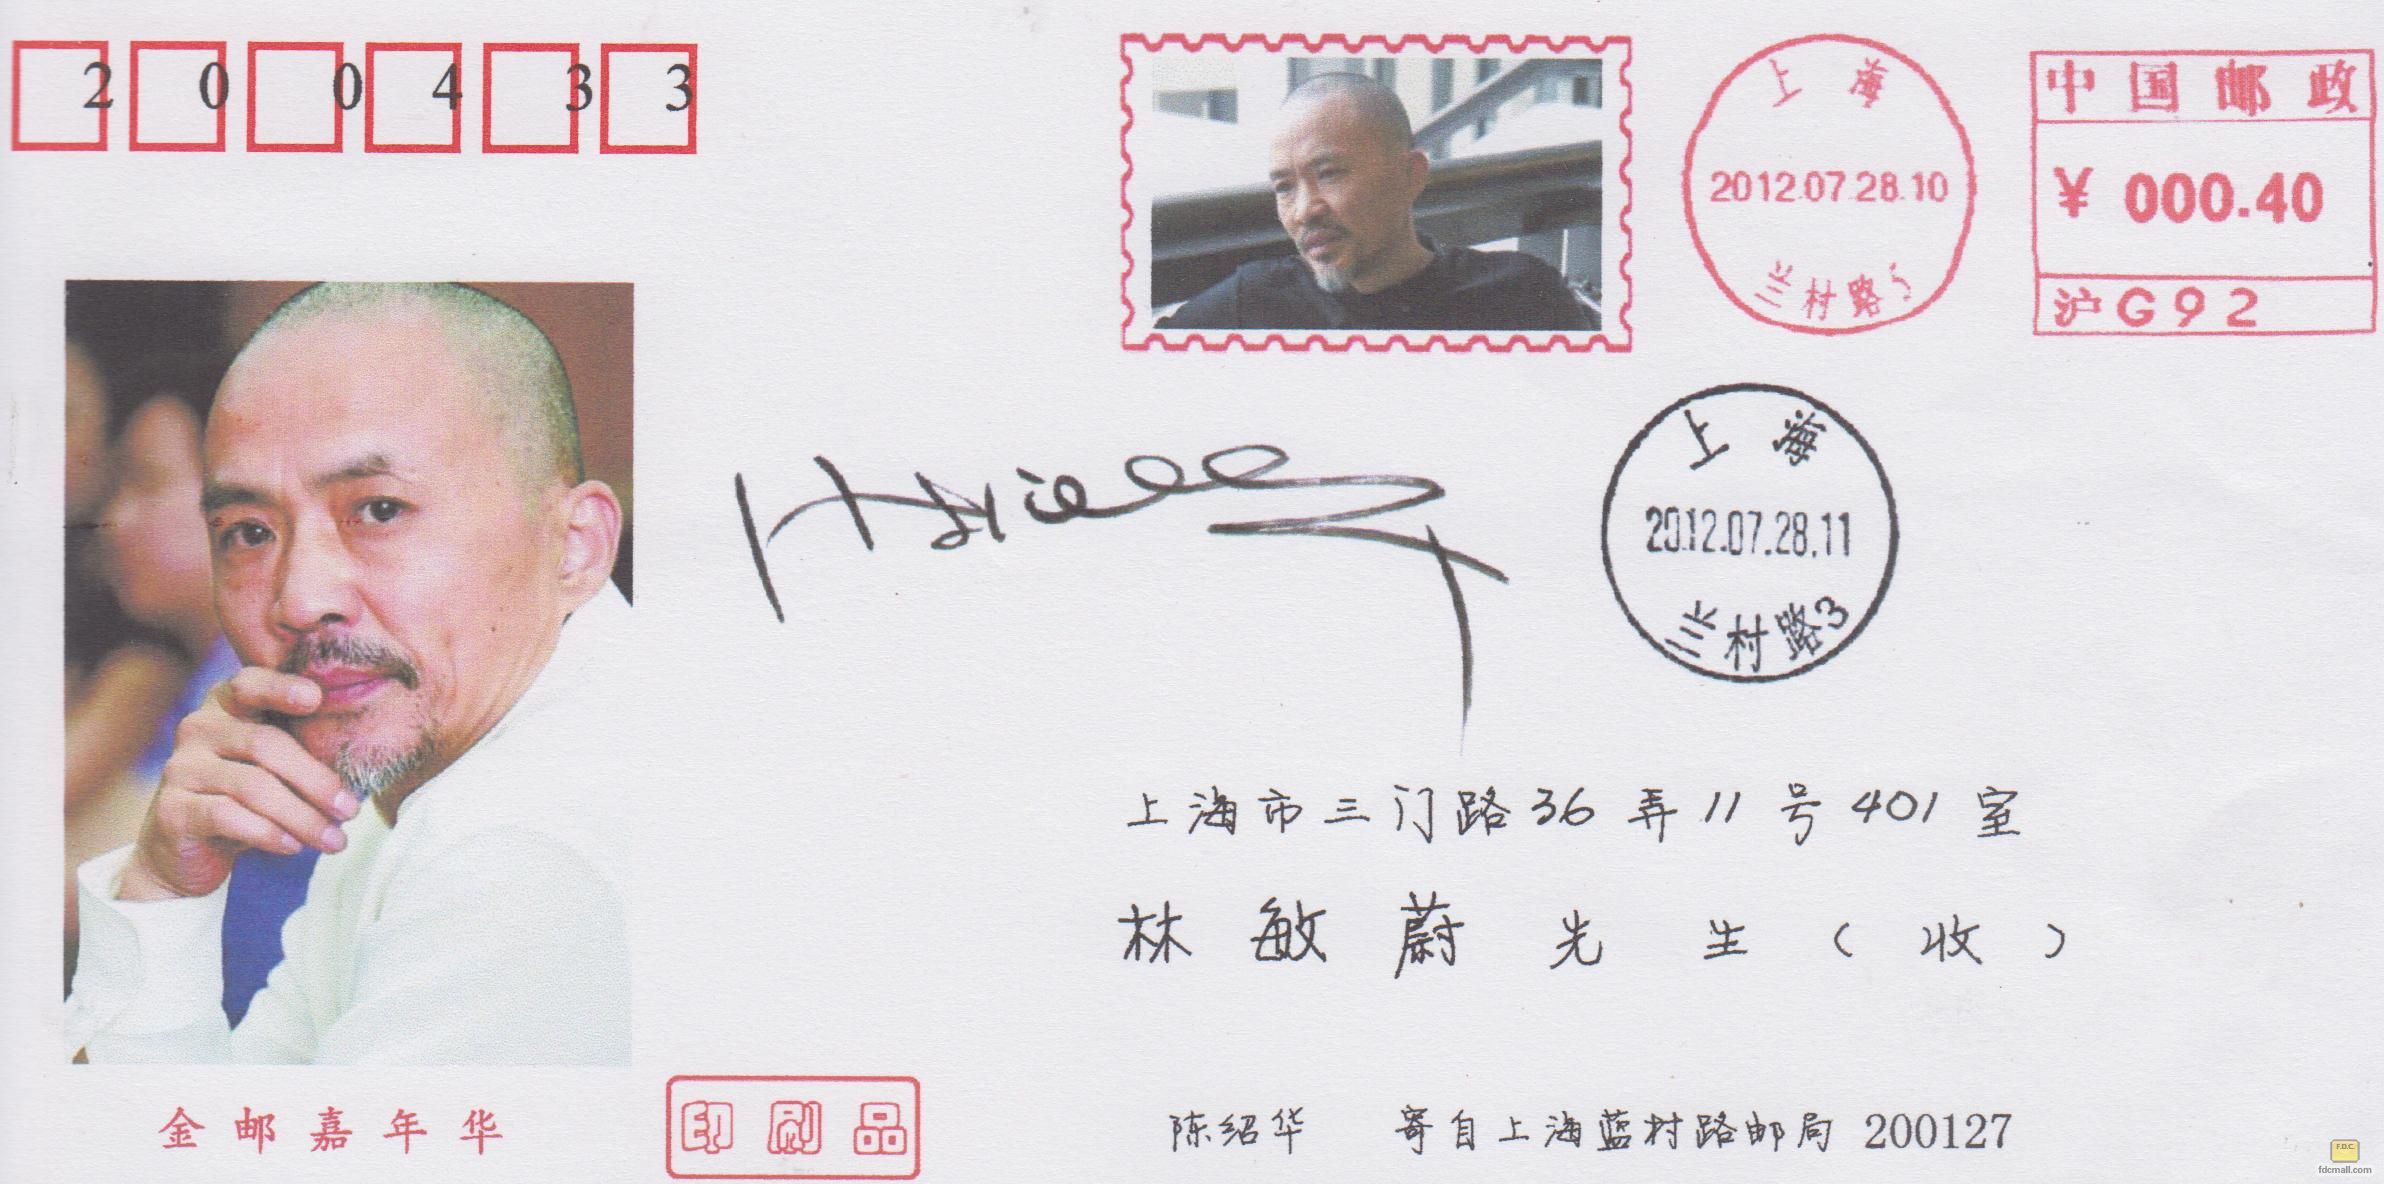 200433
上海
2012.07.28.10
兰村路5
中国邮政
¥ 000.40
沪G92
上海
2012.07.28.11
兰村路3
上海市三门路36弄11号401室
林敏蔚先生(收)
金邮嘉年华
印刷品
陈绍华 寄自上海蓝村路邮局 200127
F.D.C.
fdcmall.com